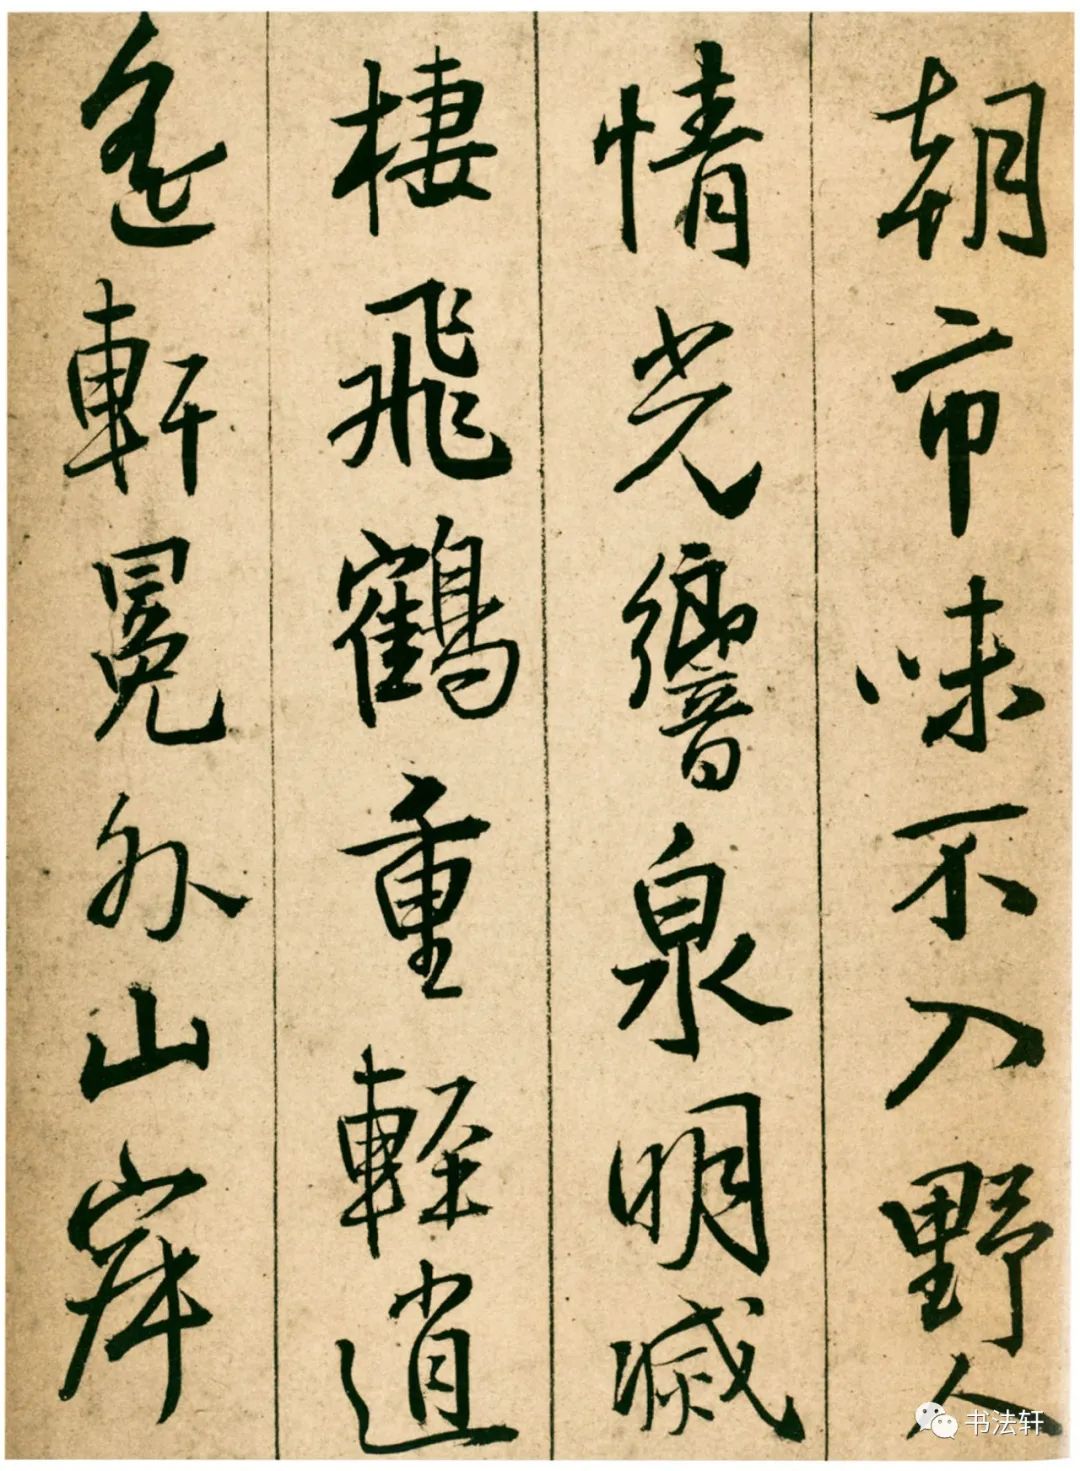 朝市味不入野人
情光響泉明滅
棲飛鶴重輕逍
遙軒冕外山岸
书法轩